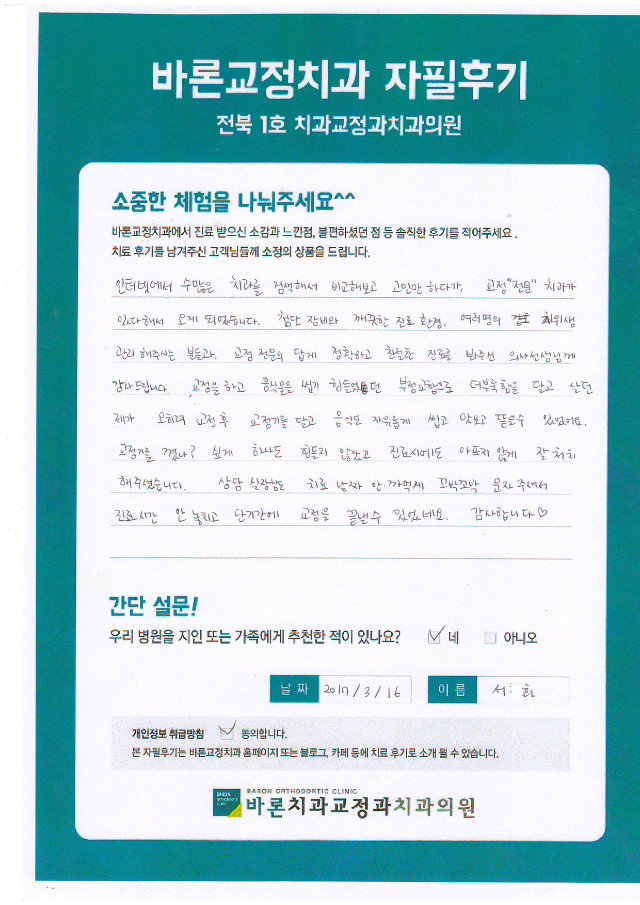 바론교정치과 자필후기
전북 1호 치과교정과치과의원
소중한 체험을 나눠주세요^^
바론교정치과에서 진료 받으신 소감과 느낀점, 불편하셨던 점 등 솔직한 후기를 적어주세요.
치료 후기를 남겨주신 고객님들께 소정의 상품을 드립니다.
인터넷에서 수많은 치과를 검색해서 비교해보고 고민만 하다가, 교정"전문" 치과가
있다해서 오게 되었습니다. 첨단 장비와 깨끗한 진료환경, 여러명의 치위생
관리해주시는 분들과, 교정 전문의 답게 정확하고 친절한 진료를 봐주신 의사선생님께
감사드립니다. 교정을 하고 음식물을 씹기 힘들었던 부정교합으로 더부룩함을 달고 살던
제가 오히려 교정 후 교정기를 달고 음식도 자유롭게 씹고 맛보고 뜯을수 있었어요.
교정기를 꼈나? 싶게 하나도 힘들지 않았고 진료시에도 아프지 않게 잘 처치
해주셨습니다. 상담 실장님도 치료 날짜 안 까먹게 꼬박꼬박 문자 주셔서
진료시간 안 놓치고 단기간에 교정을 끝낼수 있었네요. 감사합니다♡
간단 설문!
우리 병원을 지인 또는 가족에게 추천한 적이 있나요? 네 아니오
날 짜 2017/3/16 이 름 서 화
개인정보 취급방침 동의합니다.
본 자필후기는 바론교정치과 홈페이지 또는 블로그, 카페 등에 치료 후기로 소개 될 수 있습니다.
BARON ORTHODONTIC CLINIC
바론치과교정과치과의원